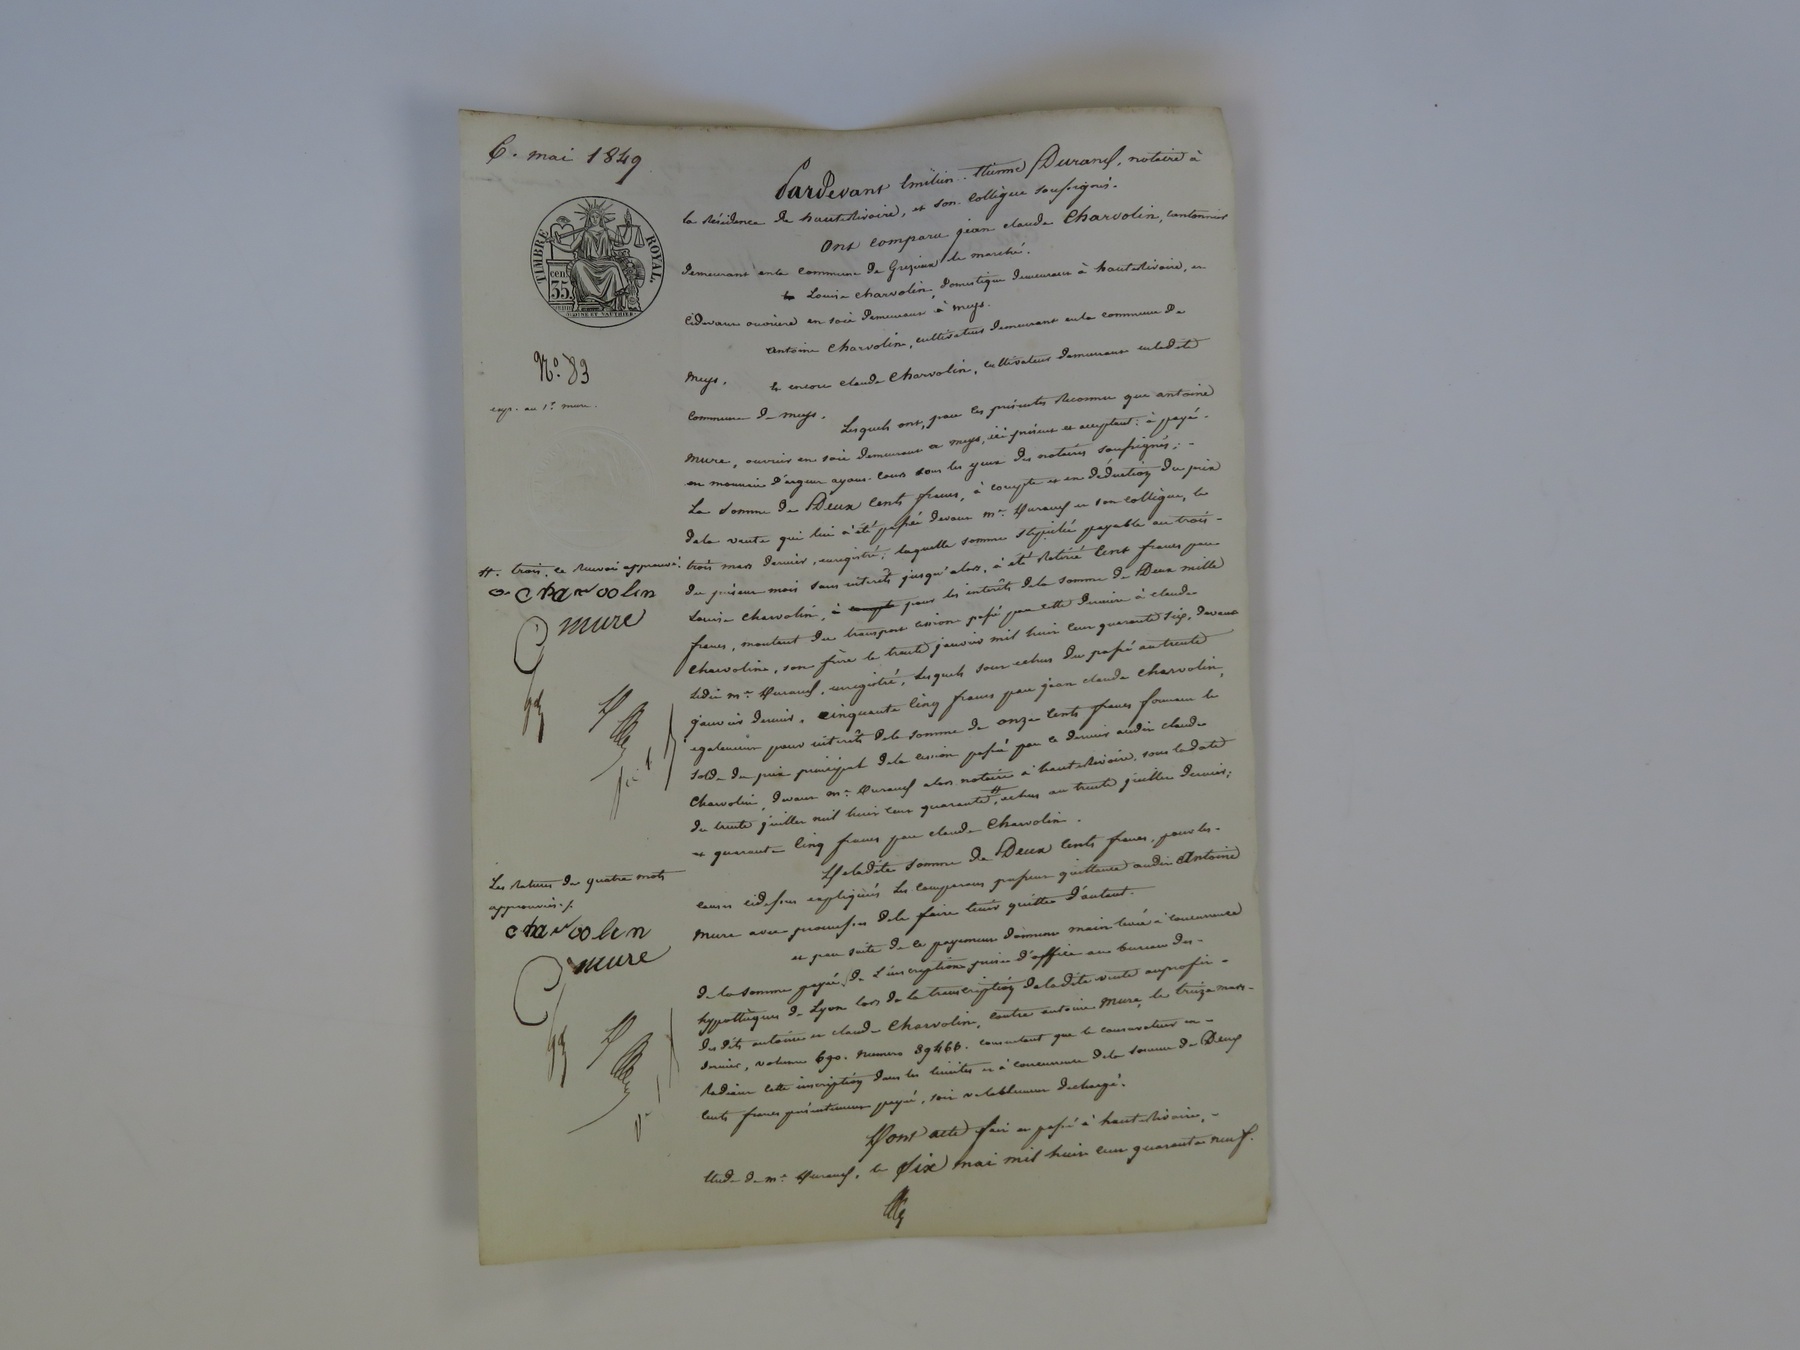 6. mai 1849
Pardevant Emilien Etienne Durand, notaire à
la Résidence de hauteRivoire, et son Collègue soussignés.
Ont comparu jean claude Charvolin, cantonnier
demeurant en la commune de Grezieux le marché.
Louise charvolin, domestique demeurant à hauteRivoire, et
cidevant ouvriere en soie demeurant à meys.
antoine Charvolin, cultivateur demeurant en la commune de
meys.
Et encore claude Charvolin, cultivateur demeurant en ladite
commune de meys.
Lesquels ont, par ces présentes Reconnu que antoine
mure, ouvrier en soie demeurant a meys, ici présent et acceptant: à payé
en monnaie d'argent ayant cours sous les yeux des notaires soussignés;
La Somme de Deux Cents francs, à compte et en déduction du prix
dela vente qui lui à été passée devant me. Durand et son collègue, le
trois mars dernier, enregistré; laquelle somme stipulée payable au trois
du présent mois sans intérêts jusqu'alors, à été Retirée Cent francs par
Louise charvolin, à compte pour les intérêts dela somme de Deux mille
francs, montant du transport cession passé par cette dernière à claude
Charvolin, son frère le trente janvier mil huit cent quarante six, devant
ledit me. Durand, enregistré, lesquels sont échus du passé au trente
janvier dernier. Cinquante Cinq francs par jean claude charvolin,
également pour intérêts dela somme de onze Cents francs formant le
solde du prix principal dela cession passée par ce dernier audit claude
Charvolin, devant me. Durand alors notaire à hauteRivoire, sous la date
du trente juillet mil huit cent quarante #, échus au trente juillet dernier;
et quarante Cinq francs par claude Charvolin.
De ladite Somme de Deux Cents francs, pour les
causes cidessus expliquées Les Comparans passent quittance audit Antoine
Mure avec promesse dele faire tenir quitte d'autant.
et par suite de ce payement donnent main levée à concurrence
de la somme payée, de L'inscription prise d'office au bureau des
hypothèques de Lyon lors de la transcription deladite vente au profit
desdits antoine et claude Charvolin, contre antoine Mure, le treize mars
dernier, volume 690. numero 39466. consentant que le conservateur en
Radiant cette inscription dans les limites et à concurrence dela somme de Deux
Cents francs présentement payée, soit valablement déchargé.
Dont acte fait et passé à hauteRivoire,
Etude de me. Durand, le Six mai mil huit cent quarante neuf.
TIMBRE ROYAL.
35 cen
No. 83
exp. au 1er. mure.
#. trois. ce Renvoi approuvé.
charvolin
mure
Les Ratures de quatre mots
approuvées./.
charvolin
mure